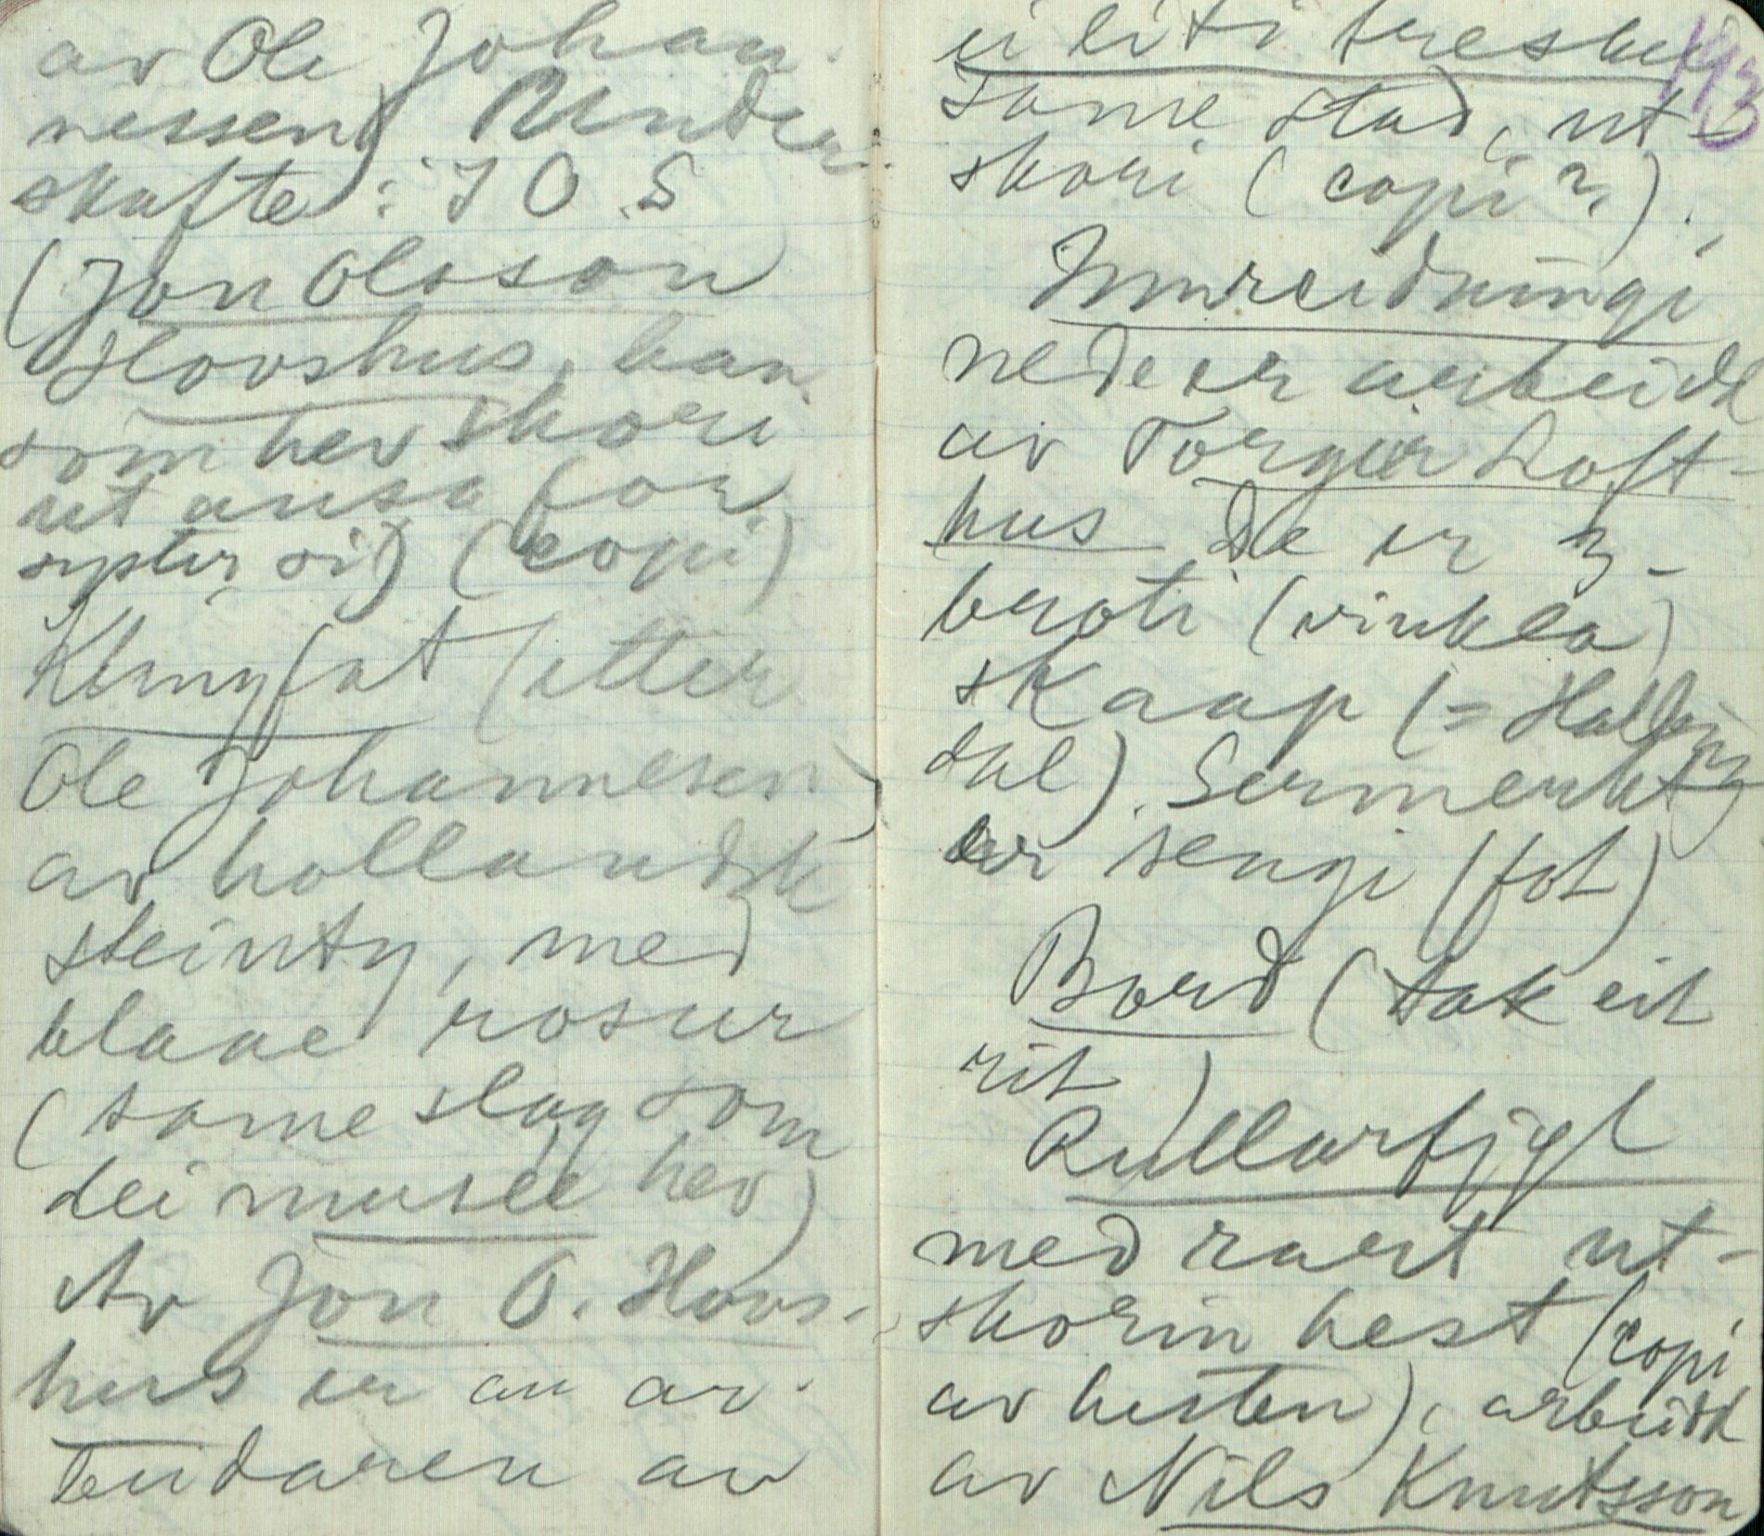 av Ole Johan-
nessen) Under
skafte: I O S
(Jon Olsson
Hovshus, han
som hev skori
ut ausa for
syster si) (copi)
Klingfat (etter
Ole Johannesen)
av hollandsk
steinty, med
blaae rosur
(same slag som
dei musee hev)
Av Jon O. Hovs-
hus er au ar-
beidaren av
ei liti treskei
193
same stad, ut-
skori (copi?).
Innreidningi
nede er arbeidd
av Torgeir Loft-
hus De er 3-
broti (vinkla)
skaap (= Halling
dal). Sermerkt
er sengi (fot)
Bord (tak eit
rit)
Rullarfjøl
med rart ut-
skorin hest (copi
av hesten), arbeidd
av Nils Knutsson